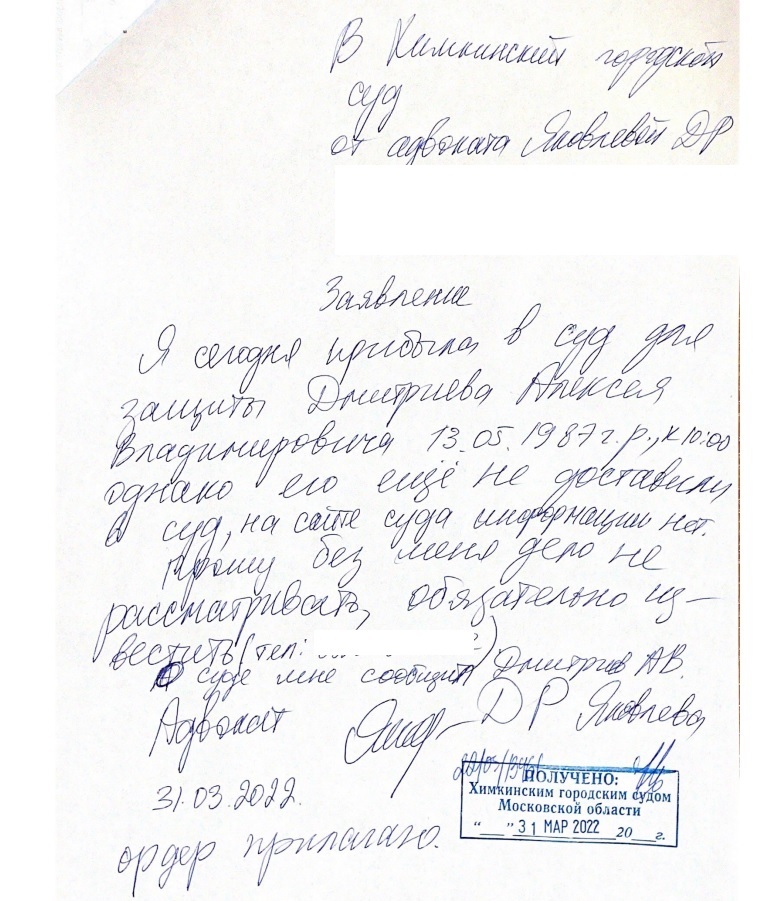 В Химкинский городской
суд
от адвоката Яковлевой ДР
Заявление
Я сегодня прибыла в суд для
защиты Дмитриева Алексея
Владимировича 13.05.1987 г.р., к 10:00
однако его ещё не доставили
в суд, на сайте суда информации нет.
Прошу без меня дело не
рассматривать, обязательно из-
вестить (тел: )
О суде мне сообщил Дмитриев АВ.
Адвокат ДР Яковлева
31.03.2022.
ПОЛУЧЕНО:
Химкинским городским судом
Московской области
"___" 31 МАР 2022 20___г.
ордер прилагаю.